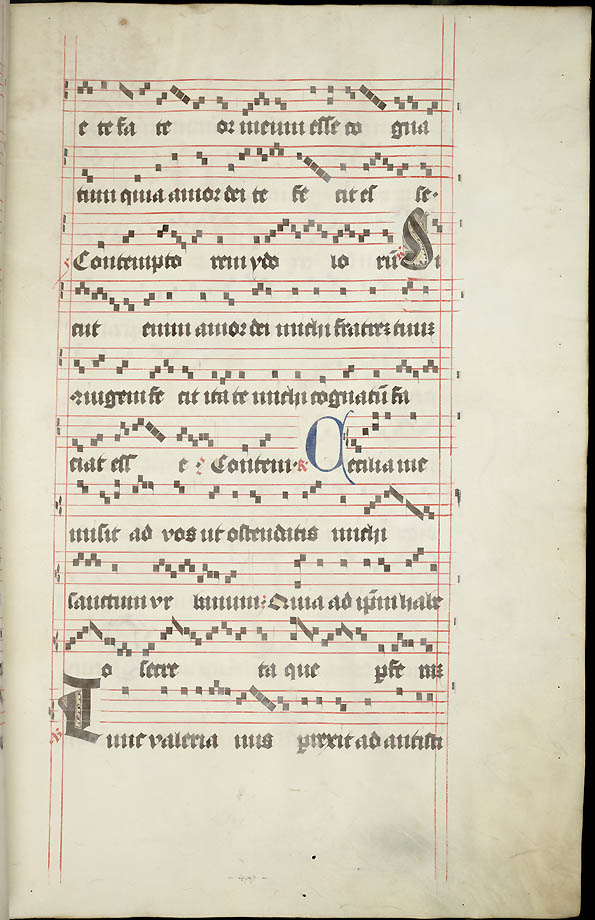 e te fa te or meum esse co gna
tum quia amor dei te fe cit es se.
Contempto rem ydo lo rū Si
cut enim amor dei michi fratrez tuuz
ꝯiugem fe cit ita te michi cognatū fa
ciat ess e Contem Cecilia me
misit ad vos ut ostenditis michi
sanctum vr banum Quia ad ip̄m habe
o secre ta que pfe raz
Tunc valeria nus prexit ad antisti